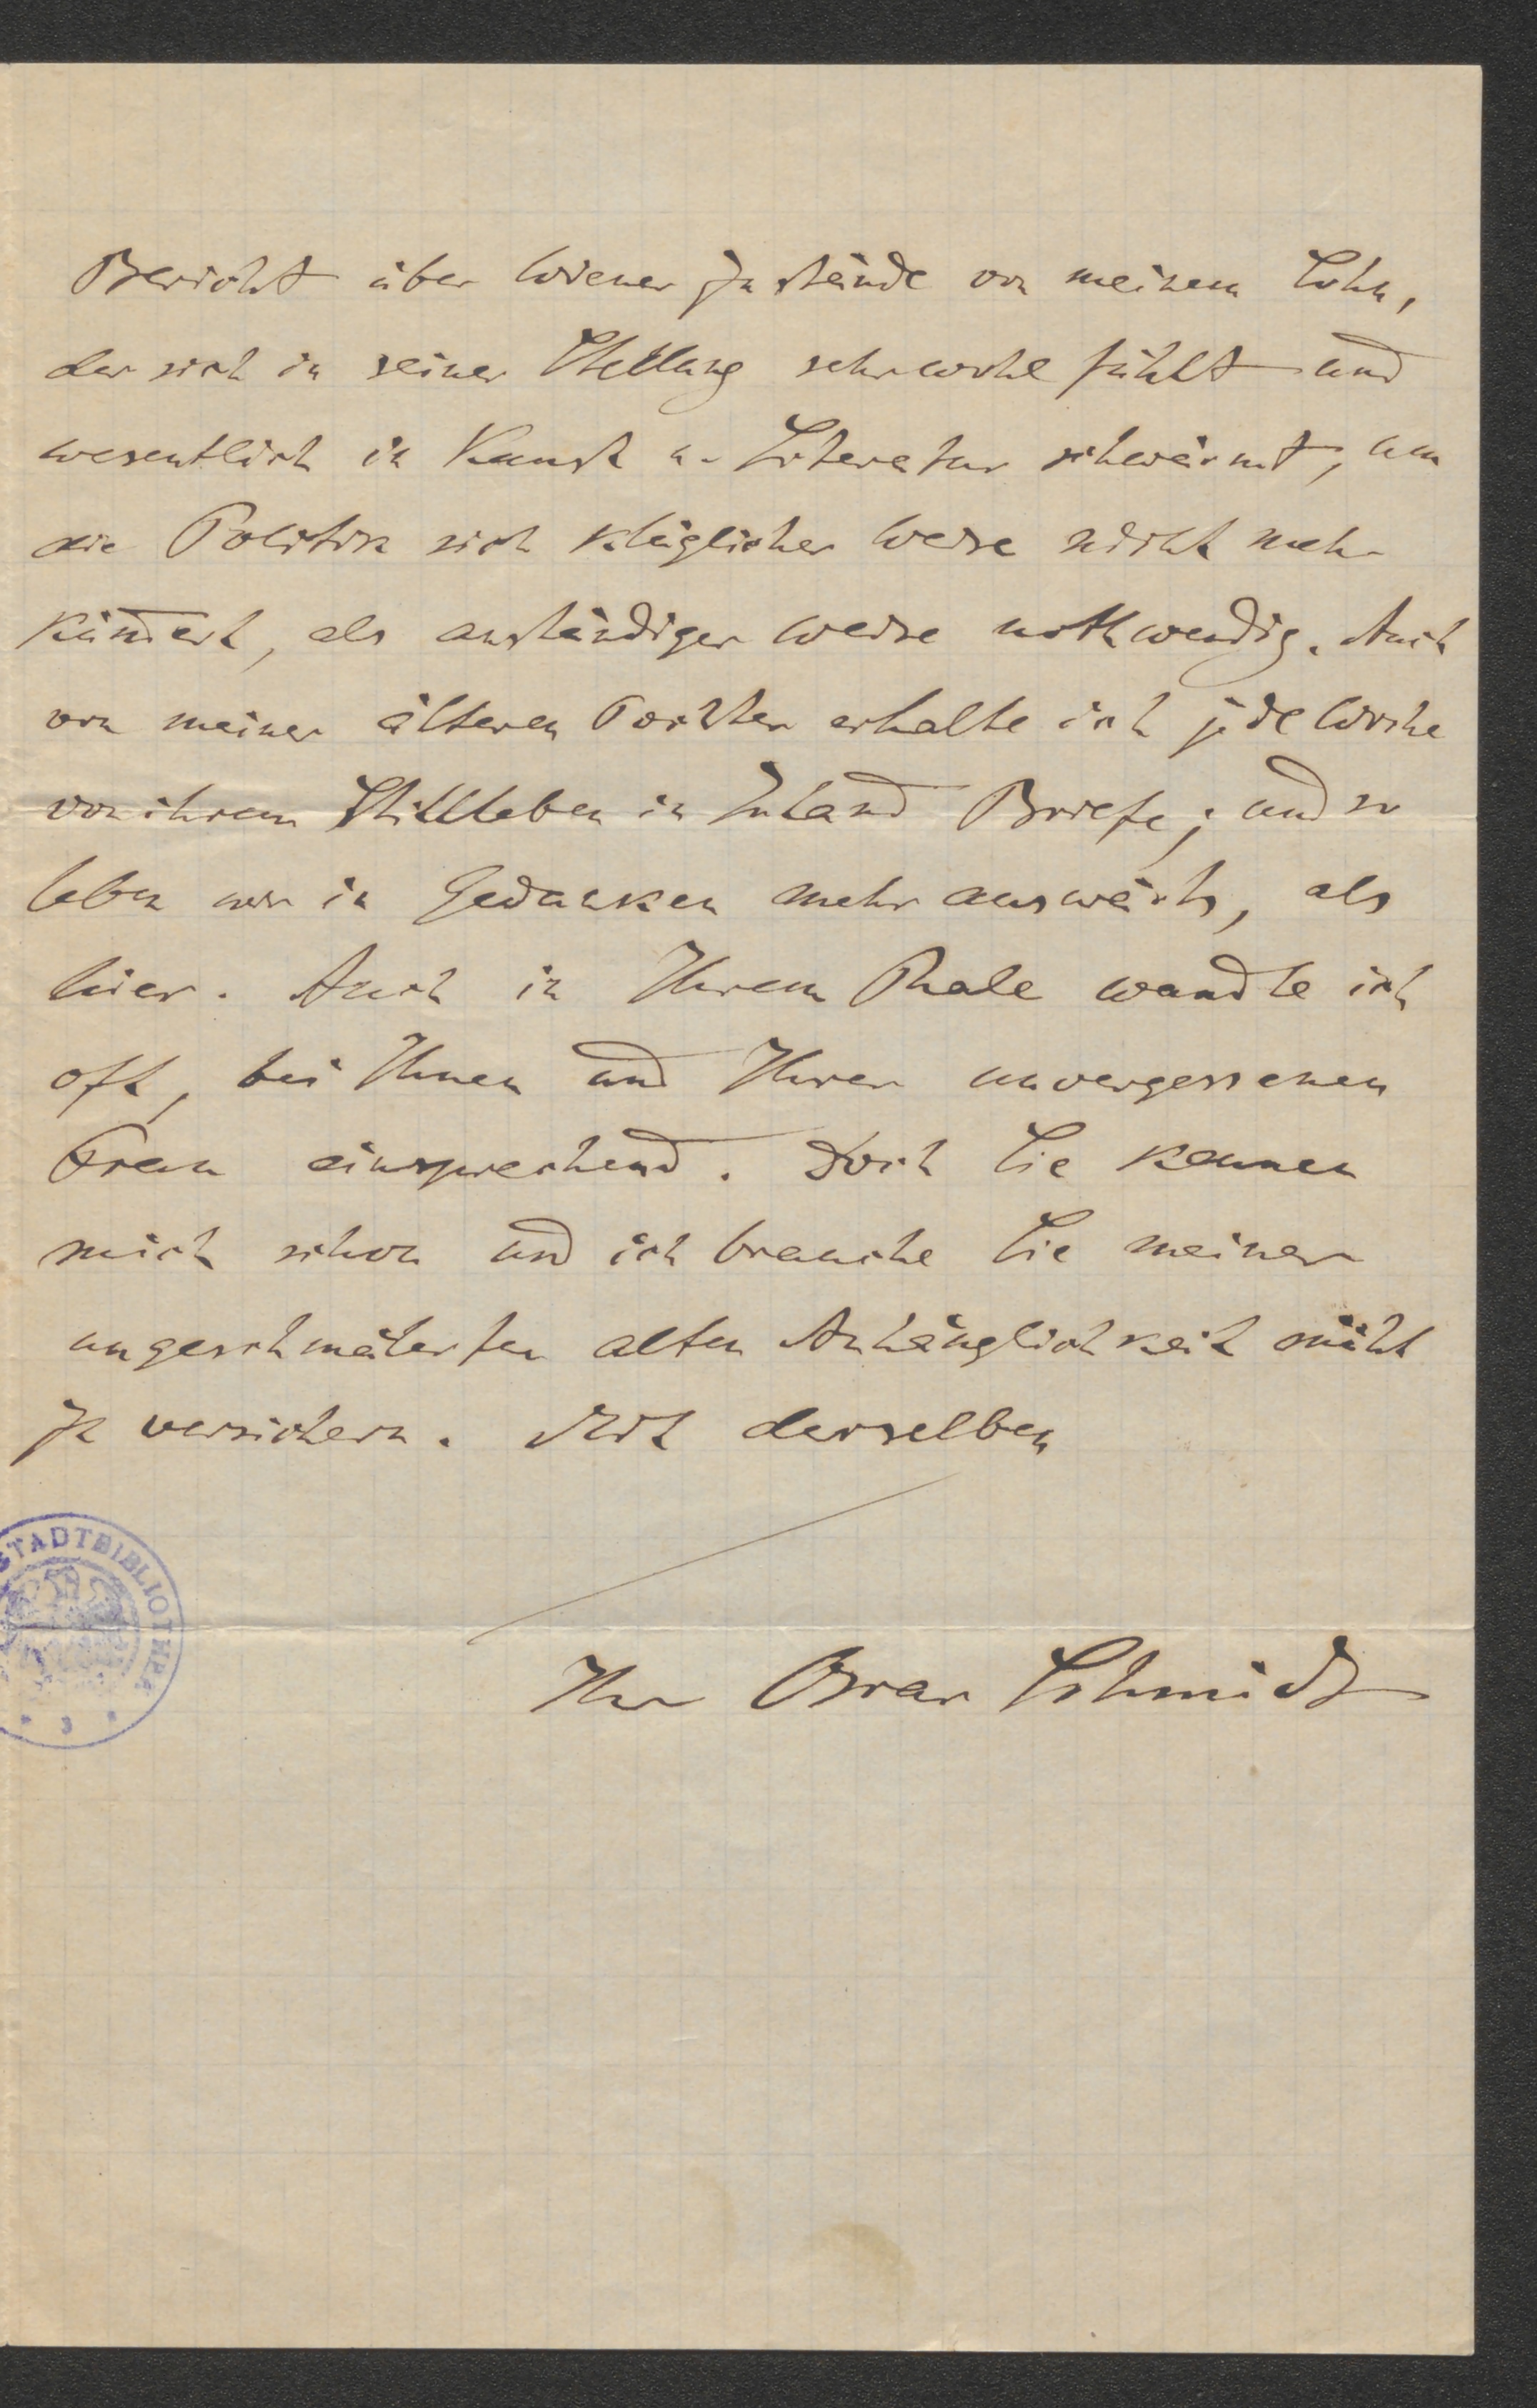 Bericht über Wiener Zustände von meinem Sohn,
der sich in seiner Stellung sehr wohl fühlt und
wesentlich in Kunst u. Literatur schwärmt, um
die Politik sich kläglicher Weise nicht mehr
kümert, als anständiger Weise nothwendig. Auch
von meiner älteren Tochter erhalte ich jede Woche
von ihrem Stillleben in Briefe; und so
leben wir in Gedanken mehr auswärts, als
hier. Auch in Ihrem Thale wandle ich
oft, bei Ihnen und Ihrer unvergessenen
Frau einsprechend. Doch Sie kennen
mich schon und ich brauche Sie meiner
ungeschmälerten alten Anhänglichkeit nicht
zu versichern. Mit derselben
Ihr Oscar Schmidt
STADTBIBLIOTHEK
* 3 *